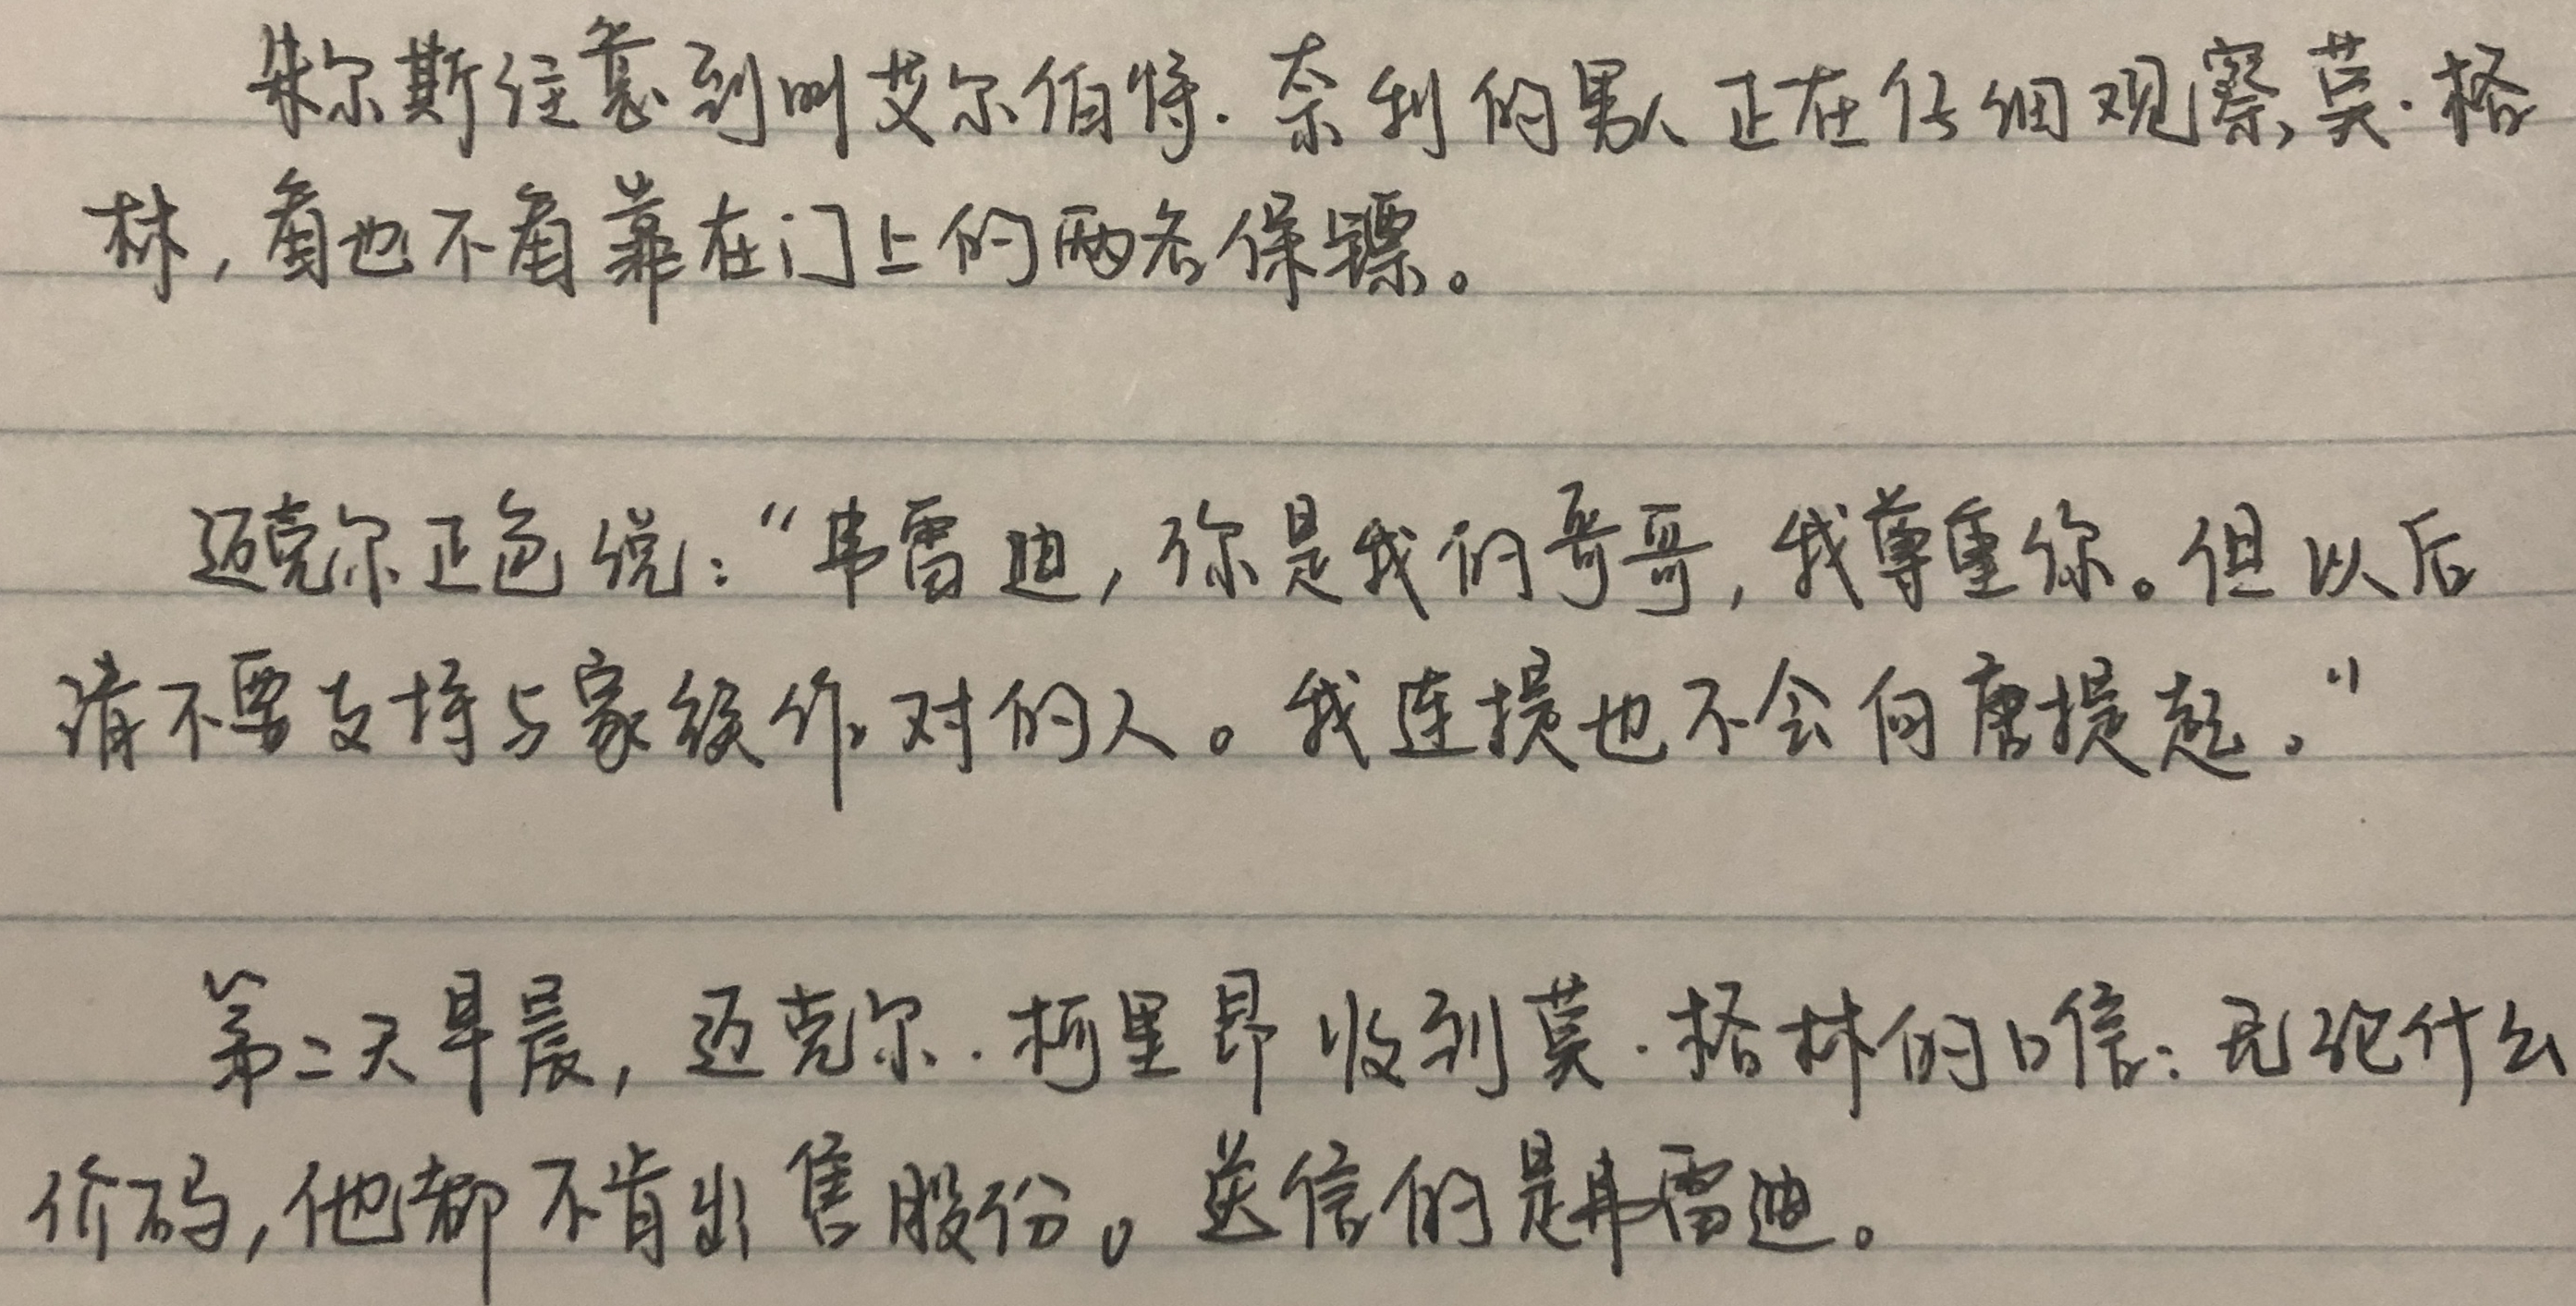 朱尔斯注意到叫艾尔伯特·奈利的男人正在仔细观察莫·格
林，看也不看靠在门上的两名保镖。
迈克尔正色说：“弗雷迪，你是我们哥哥，我尊重你。但以后
请不要支持与家族作对的人。我连提也不会向唐提起。”
第二天早晨，迈克尔·柯里昂收到莫·格林的口信：无论什么
价码，他都不肯出售股份。送信的是弗雷迪。